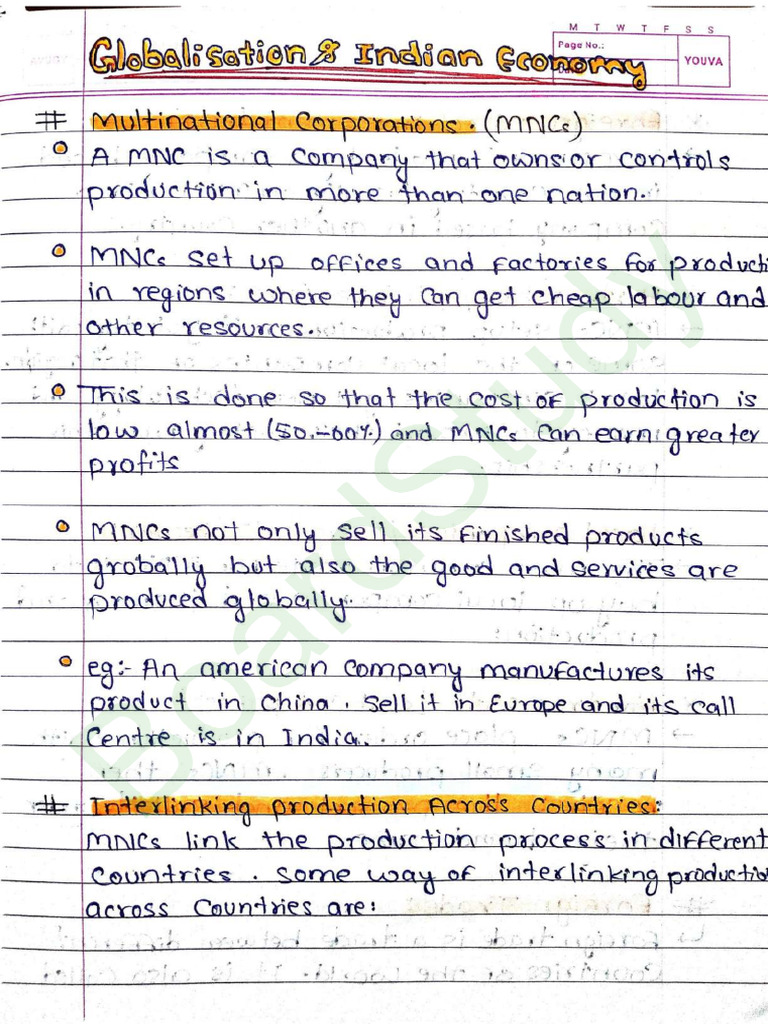 M T W T F S S
Page No.:
YOUVA
Globalisation & Indian Economy
# Multinational Corporations. (MNCs)
A MNC is a company that owns or controls
production in more than one nation.
MNCs set up offices and factories for producti
in regions where they can get cheap labour and
other resources.
This is done so that the cost of production is
low almost (50.-60%) and MNCs can earn greater
profits
MNCs not only sell its finished products
grobally but also the good and services are
produced globally.
eg:- An american company manufactures its
product in China. Sell it in Europe and its call
Centre is in India.
# Interlinking production Across Countries:
MNCs link the production process in different
Countries. Some way of interlinking productio
across Countries are:
BoardStudy